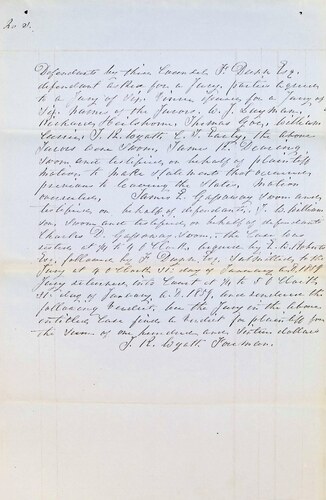 No. 2.
Defendants by their Counsel F. Dugan Esq.
defendant askes for a Jury, parties agrees
to a Jury of Six. Venire issues for a Jury of
Six. Names of the Jurors. W. J. Slayman,
Richard Heilshorn, Thomas Goe, William
Currin, J. R. Wyatt C. T. Early, the above
Jurors were Sworn, James H. Dearing
Sworn and testifies on behalf of plaintiff
motion, to make statements that occurred
previous to leaving the States, motion
overruled, James E. Gassaway Sworn and
testifies on behalf of defendants, J. C. William
son, Sworn and testified on behalf of defendants
Charles D. Gassaway Sworn, the Case was
rested at 1/4 to 4 O Clock, argued by E. H. Roberts
Esq. followed by F. Dugan Esq. Submitted to the
Jury at 4 O Clock 31st day of January A.D. 1859
Jury returned into Court at 1/4 to 5 O Clock
31st day of January A.D. 1859, and rendered the
following verdict. We the Jury in the above
entitled Case find a verdict for plaintiff for
the Sum of one hundred and Sixteen dollars
J. R. Wyatt Foreman.